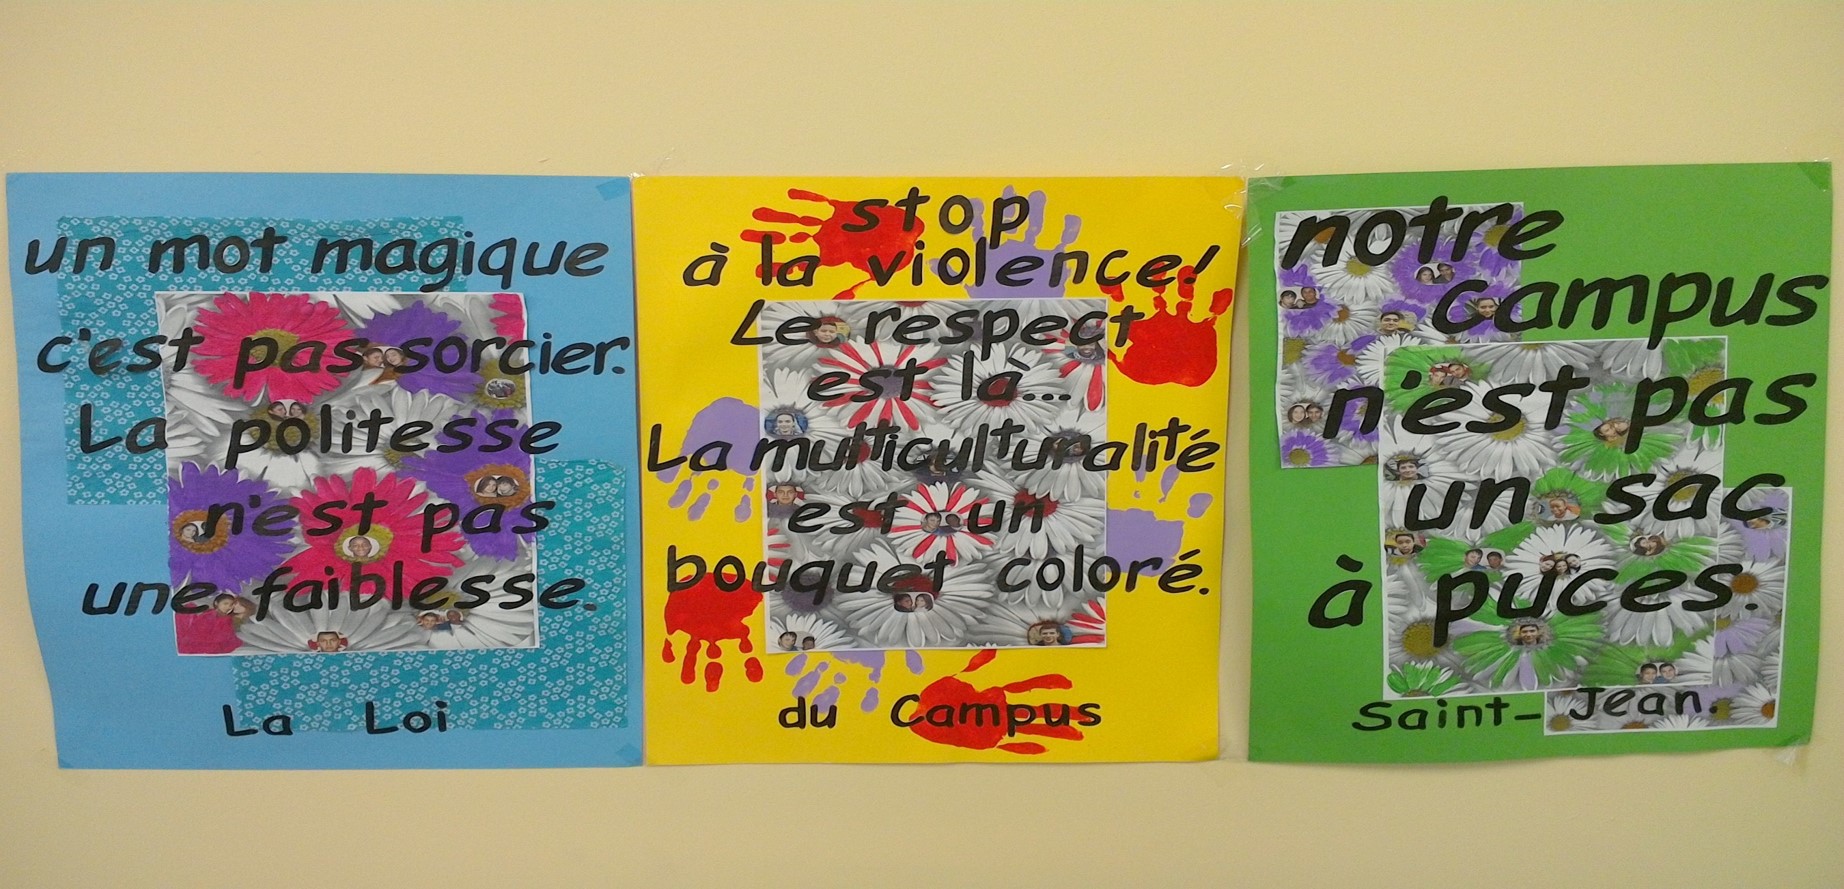 un mot magique
c'est pas sorcier.
La politesse
n'est pas
une faiblesse.
La Loi
stop
à la violence!
Le respect
est là...
La multiculturalité
est un
bouquet coloré.
du Campus
notre
campus
n'est pas
un sac
à puces.
Saint-Jean.